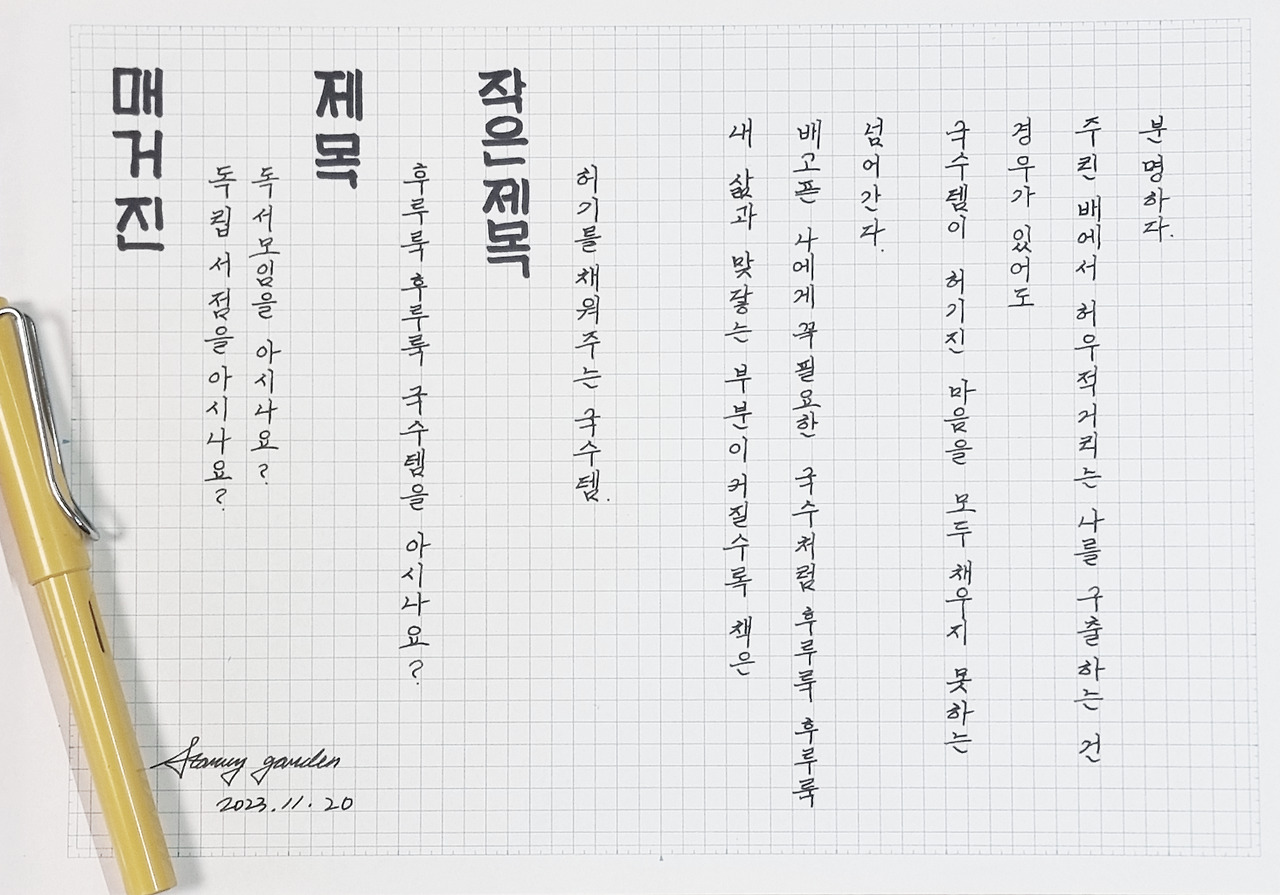 매거진
독립 서점을 아시나요?
독서모임을 아시나요?
제목
후루룩 후루룩 국수템을 아시나요?
작은제목
허기를 채워주는 국수템.
내 삶과 맞닿는 부분이 커질수록 책은
배고픈 나에게 꼭 필요한 국수처럼 후루룩 후루룩
넘어간다.
국수템이 허기진 마음을 모두 채우지 못하는
경우가 있어도
주린 배에서 허우적거리는 나를 구출하는 건
분명하다.
Starry garden
2023.11.20